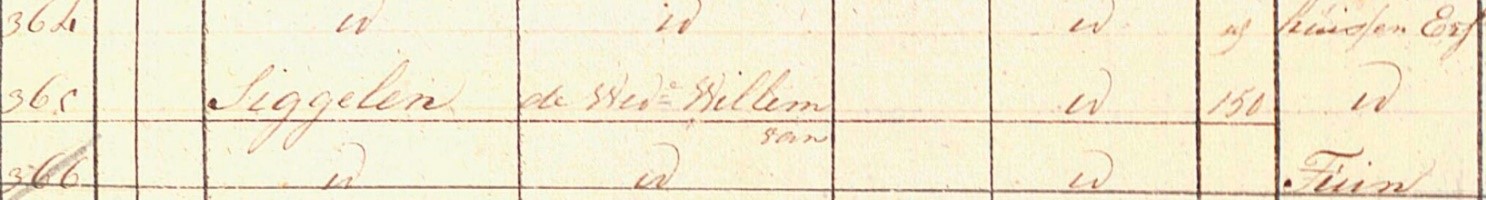 364 id id id id huis en Erf
365 Siggelen de Wedᵉ Willem id 150 id
van
366 id id id Tuin